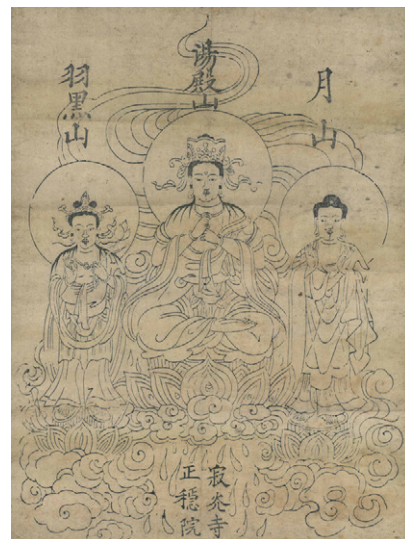 月山
湯殿山
羽黑山
寂光寺
正穏院